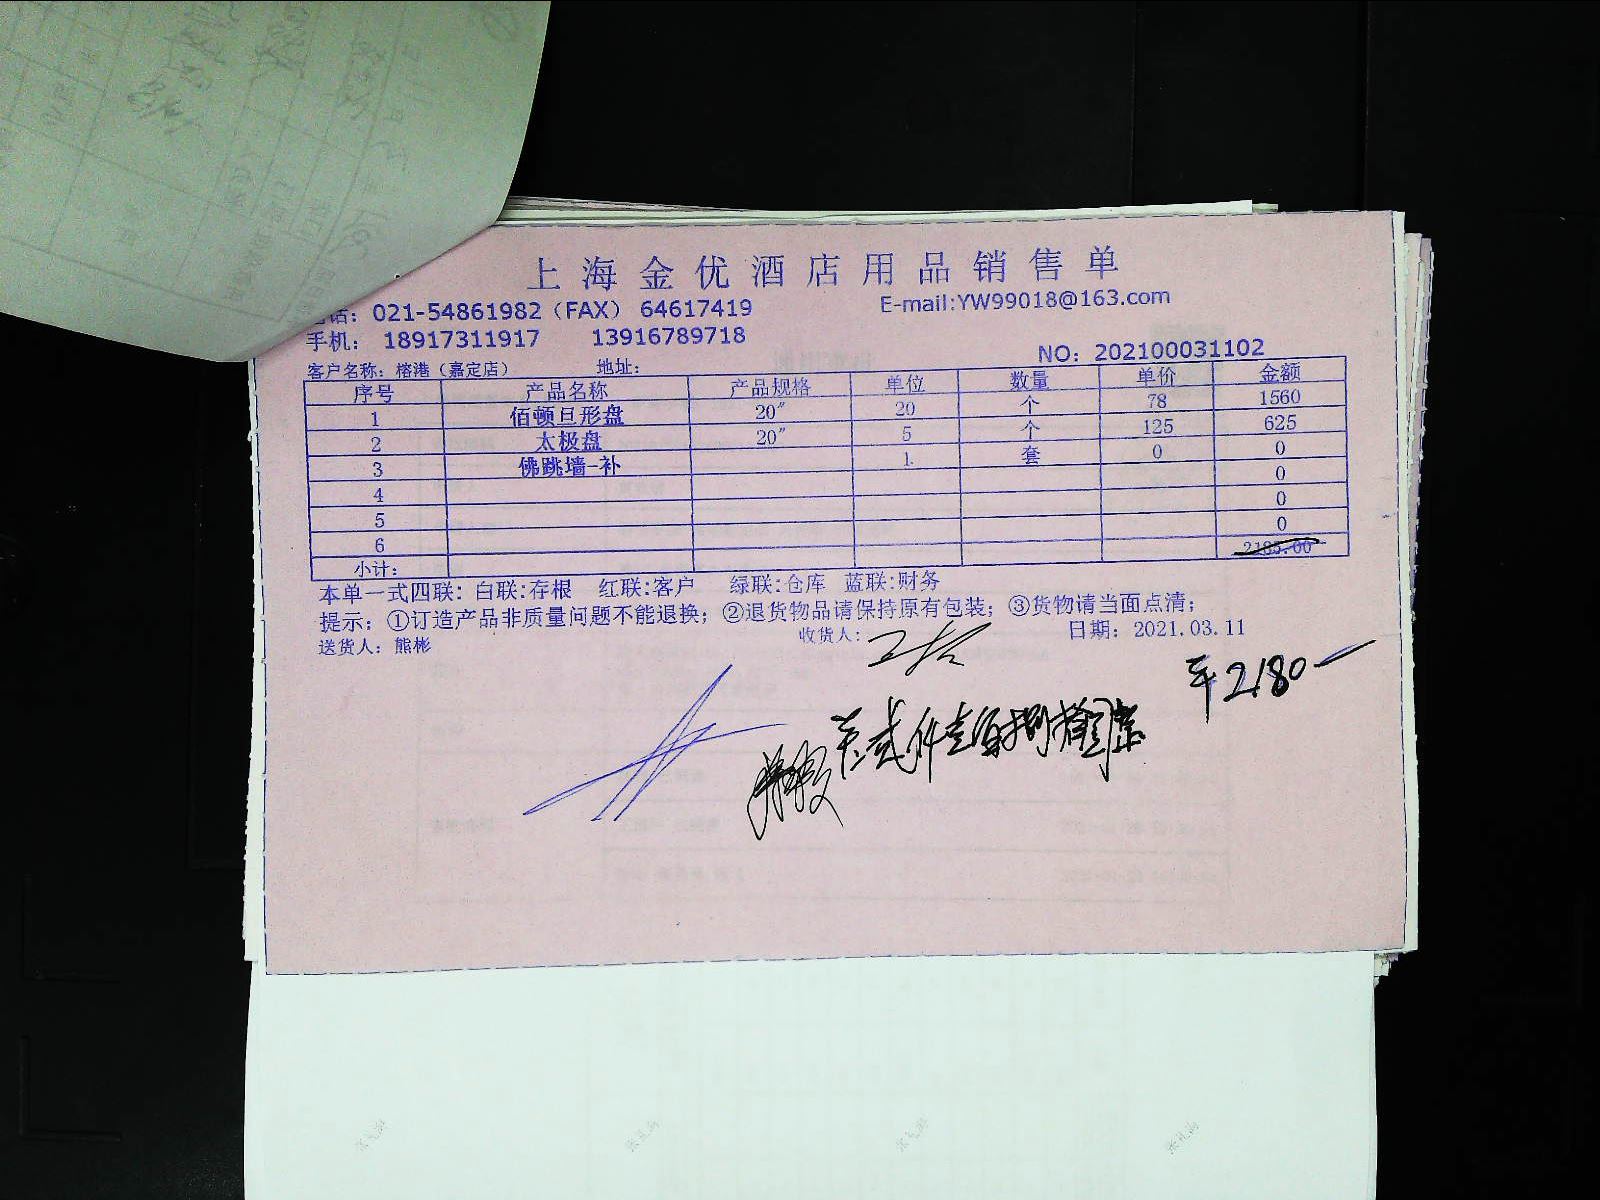 上海金优酒店用品销售单
话：021-54861982（FAX） 64617419 E-mail:YW99018@163.com
手机： 18917311917 13916789718
NO：202100031102
客户名称：榕港（嘉定店） 地址：
序号 产品名称 产品规格 单位 数量 单价 金额
1 佰顿旦形盘 20″ 20 个 78 1560
2 太极盘 20″ 5 个 125 625
3 佛跳墙-补 1 套 0 0
4 0
5 0
6 0
小计： 2185.00
本单一式四联：白联:存根 红联:客户 绿联:仓库 蓝联:财务
提示；①订造产品非质量问题不能退换；②退货物品请保持原有包装；③货物请当面点清；
送货人：熊彬 收货人： 日期：2021.03.11
￥2180